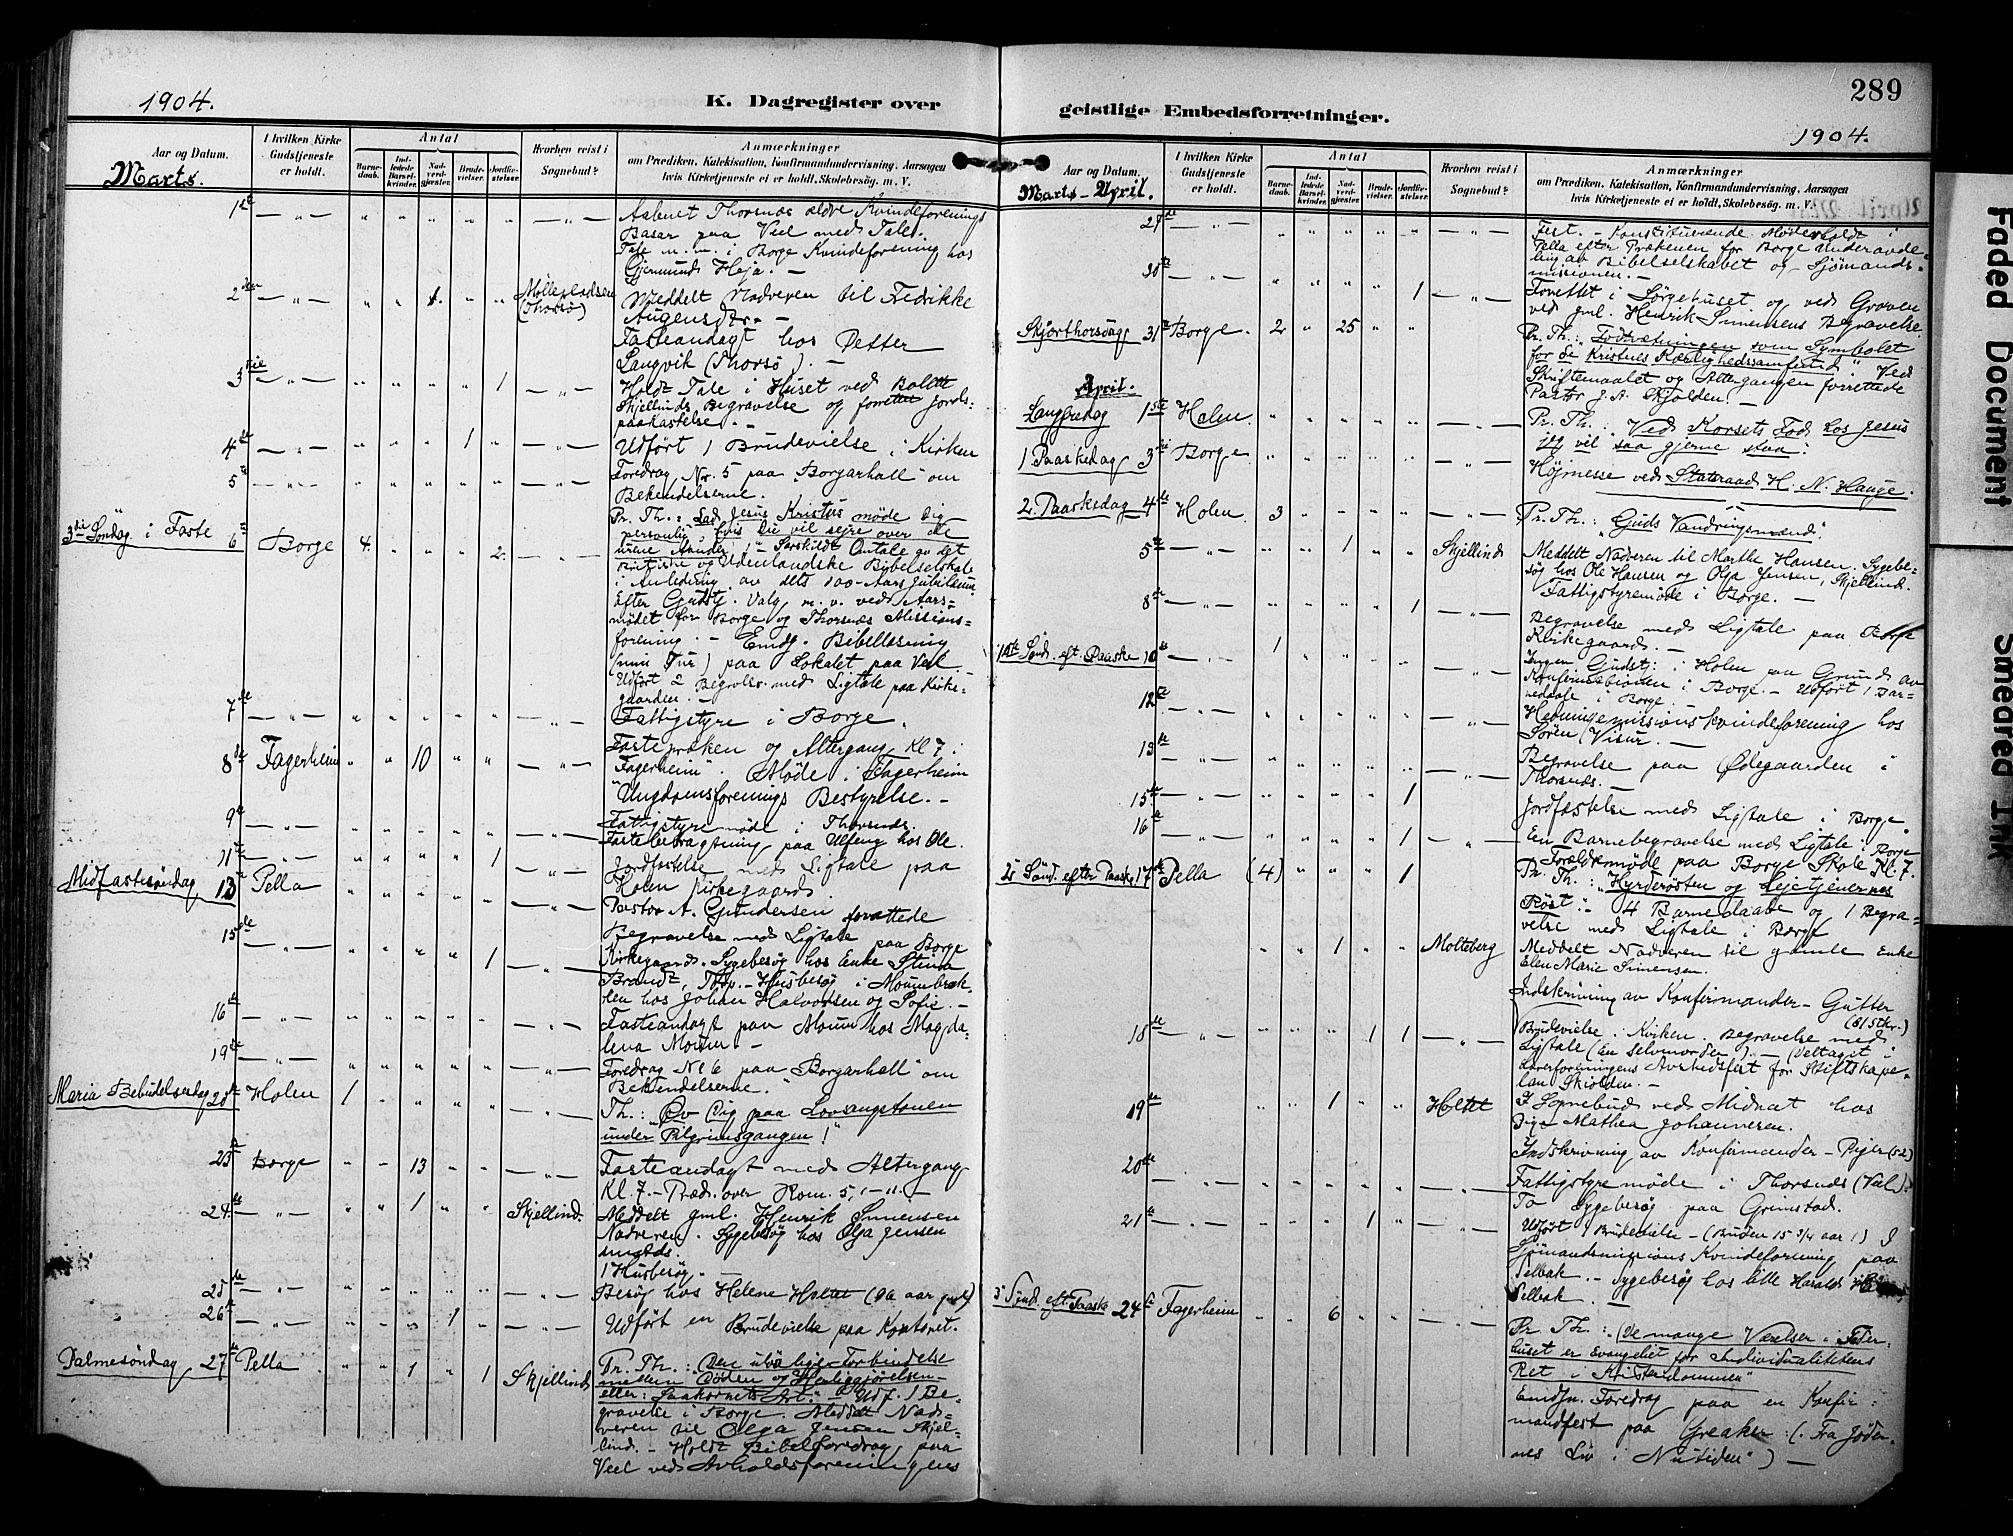 1904.
K. Dagregister over
Aar og Datum.
I hvilken Kirke Gudstjeneste er holdt.
Antal
Barne-daab.
Ind-ledede Barsel-kvinder.
Nad-verd-gjæster.
Brude-vielser.
Jordfæ-stelser.
Hvorhen reist i Sognebud?
Anmærkninger
om Prædiken, Katekisation, Konfirmandundervisning, Aarsagen
hvis Kirketjeneste ei er holdt, Skolebesøg. m. V.
Marts.
1ste — " — " " " " " — " — Aabnet Thorsnæs ældre Kvindeforenings
Basar paa Viel med Tale.
Tale m. m. i Borge Kvindeforening hos
Gjermunds Heja. —
2den — " — " " 1. " " Møllepladsen (Thorsø) Meddelt Nadveren til Fredrikke
Fasteandagt hos Petter
Langvik (Thorsø). —
3die — " — " " " " 1 — " — Holdt Tale i Huset ved Bolette
Skjellinds Begravelse og forrettet Jords-
paakastelse. —
4de — " — " " " 1 " — " — Udført 1 Brudevielse i Kirken
5te — " — " " " " " — " — Foredrag Nr. 5 paa "Borgarhall" om
Bekendelserne.
3die Søndag i Faste 6te Borge 4. " " " 2. Pr. Th.: Lad Jesus Kristus møde Dig
personlig hvis Du vil sejre over de
urene Aander!" — Særskildt Omtale av det
Britiske og Udenlandske Bibelselskab
i Anledning av dets 100-Aars Jubilæum
Efter Gudstj. Valg m. v. ved Aars-
mødet for Borge og Thorsnæs Missions-
forening. — Emdg. Bibellæsning
(min Tur) paa Lokalet paa Viel
Udført 2 Begravls. med Ligtale paa Kirke-
gaarden. —
7de — " — " " " " " — " — Fattigstyre i Borge.
8de Fagerheim " " 10 " " — " — Fastepræken og Altergang Kl 7 i
"Fagerheim". Møde i Fagerheim
Ungdomsforenings Bestyrelse. —
9de — " — " " " " " — " — Fattigstyremøde i Thorsnæs.
Fastebetragtning paa Ulfeng hos Ole.
11te — " — " " " " 1 — " — Jordfæstelse med Ligtale paa
Holen Kirkegaard
Midfastesøndag 13de Pella " " " " " — " — Pastor A. Gundersen forrettede
15de — " — " " " " 1 — " — Begravelse med Ligtale paa Borge
Kirkegaard. Sygebesøg hos Enke Stina
Brandt, — Husbesøg i Moumbæk-
len hos Johan Halvorsen og Sofie. —
16de — " — " " " " " — " — Fasteandagt paa Moum hos Magda-
lena Moum. —
19de — " — " " " " " — " — Foredrag No 6 paa "Borgarhall" om
Bekendelserne."
Maria Bebudelsesdag 20de Holen 1 " " " " — " — Th.: "Øv Dig paa Lovsangstonen
under Pilgrimsgangen!"
23de Borge " " 13 " " — " — Fasteandagt med Altergang
Kl. 7. — Præd. over Rom. 5, 1-11. —
24de — " — " " 1 " " Skjellind. Meddelt gml. Henrik Simensen
Nadveren. Sygebesøg hos Olga Jensen
1 Husbesøg. —
25de — " — " " " " " — " — Besøg hos Helene Holtet (96 aar gml.)
26de — " — " " " 1 " — " — Udført en Brudevielse paa Kontoret.
Palmesøndag 27de Pella " " 1 " 1 Skjellind Pr. Th.: Den uløselige Forbindelse
mellem Døden og Herliggjørelsen
eller: Sædkornets Art." — Udf. 1 Be
gravelse i Borge. Meddelt Nad-
veren til Olga Jensen Skjel-
lind. — Holdt Bibelforedrag paa
Veel ved Avholdsforeningens
289
geistlige Embedsforretninger.
1904.
Aar og Datum.
I hvilken Kirke Gudstjeneste er holdt.
Antal
Barne-daab.
Ind-ledede Barsel-kvinder.
Nad-verd-gjæster.
Brude-vielser.
Jordfæ-stelser.
Hvorhen reist i Sognebud?
Anmærkninger
om Prædiken, Katekisation, Konfirmandundervisning, Aarsagen
hvis Kirketjeneste ei er holdt, Skolebesøg. m. V.
Marts — April.
27de — " — " " " " " — " — Fest. — Konstituerende Møde holdt i
Pella efter Prækenen for Borge Underavde-
ling av Bibelselskabet og Sjömands-
missionen. —
30te — " — " " " " 1 — " — Forrettet i Sørgehuset og ved Graven
ved gml. Henrik Simensens Begravelse
Skjærthorsdag 31te Borge. 2 " 25 " " — " — Pr. Th.: "Fodtvætningen som Symbolet
for de Kristnes Kærlighedssamfund". Ved
Skriftemaalet og Altergangen forrettede
Pastor J. A. Skjolden.
April.
Langfredag 1ste Holen " " " " " — " — Pr. Th.: "Ved Korsets Fod hos Jesus
jeg vil saa gjerne staa."
1 Paaskedag 3die Borge " " " " " — " — Højmesse ved Statsraad H. N. Hauge.
2. Paaskedag 4de Holen. 3 " " " " — " — Pr. Th.: "Guds Vandringsmænd".
5te — " — " " 1 " " Skjellind Meddelt Nadveren til Marthe Hansen. Sygebe-
søg hos Ole Hansen og Olga Jensen, Skjellind.
Fattigstyremøde i Borge. —
8de — " — " " " " 1 — " — Begravelse med Ligtale paa Borge
Kirkegaard. —
1ste Sønd. eft. Paaske 10de — " — 1 " " " " — " — Ingen Gudstj. i Holen paa Grund av
Konfirmationen i Borge. — Udført 1 Bar-
nedaab i Borge.
12te — " — " " " " " — " — Hedningemissions Kvindeforening hos
Sören Visur. —
13de — " — " " " " " — " — Begravelse paa Ødegaarden i
Thorsnæs. —
15de — " — " " " " 1 — " — Jordfæstelse med Ligtale i Borge.
16te — " — " " " " 1 " En Barnebegravelse med Ligtale i Borge
Forældremøde paa Borge Skole Kl. 7.
2den Sönd. efter Paaske 17de Pella (4) " " " 1 — " — Pr. Th.: "Hyrderøsten og Lejetjenernes
Røst". — 4 Barnedaabe og 1 Begra-
velse med Ligtale i Borge
" " 1 " " Molteberg Meddelt Nadveren til gamle Enke
Elen Marie Simensen.
Indskrivning av Konfirmander — Gutter
(61 Stkr.)
18de — " — " " " 1 1 — " — Brudevielse i Kirken. Begravelse med
Ligtale (En Selvmorder!). — (Deltaget i
Lærerforeningens Avskedsfest for Stiftskape-
lan Skjolden. —
19de " " 1 " " Holtet I Sognebud ved Midnat hos
Pige Mathea Johannesen.
Indskrivning av Konfirmander — Piger (52)
20de — " — " " " " " — " — Fattigstyremøde i Thorsnæs (Væl).
To Sygebesøg paa Grimstad.
21de — " — " " " 1 " — " — Udført 1 Brudevielse — (Bruden 15 3/4 aar!) I
Sjømandsmissions Kvindeforening paa
Selbak. — Sygebesøg hos lille Harald
Selbak. —
3die Sönd. eft. Paaske 24de Fagerheim " " 6 " " — " — Pr. Th.: "(De mange Værelser i Fader-
huset er Evangeliet for Individualitetens
Ret i Kristendommen"
Emdgn. Foredrag paa en Konfir-
mandfest paa Greaker: (. Fra Jøder-
nes Liv i Nutiden") —
Faded Document
Smeared Ink